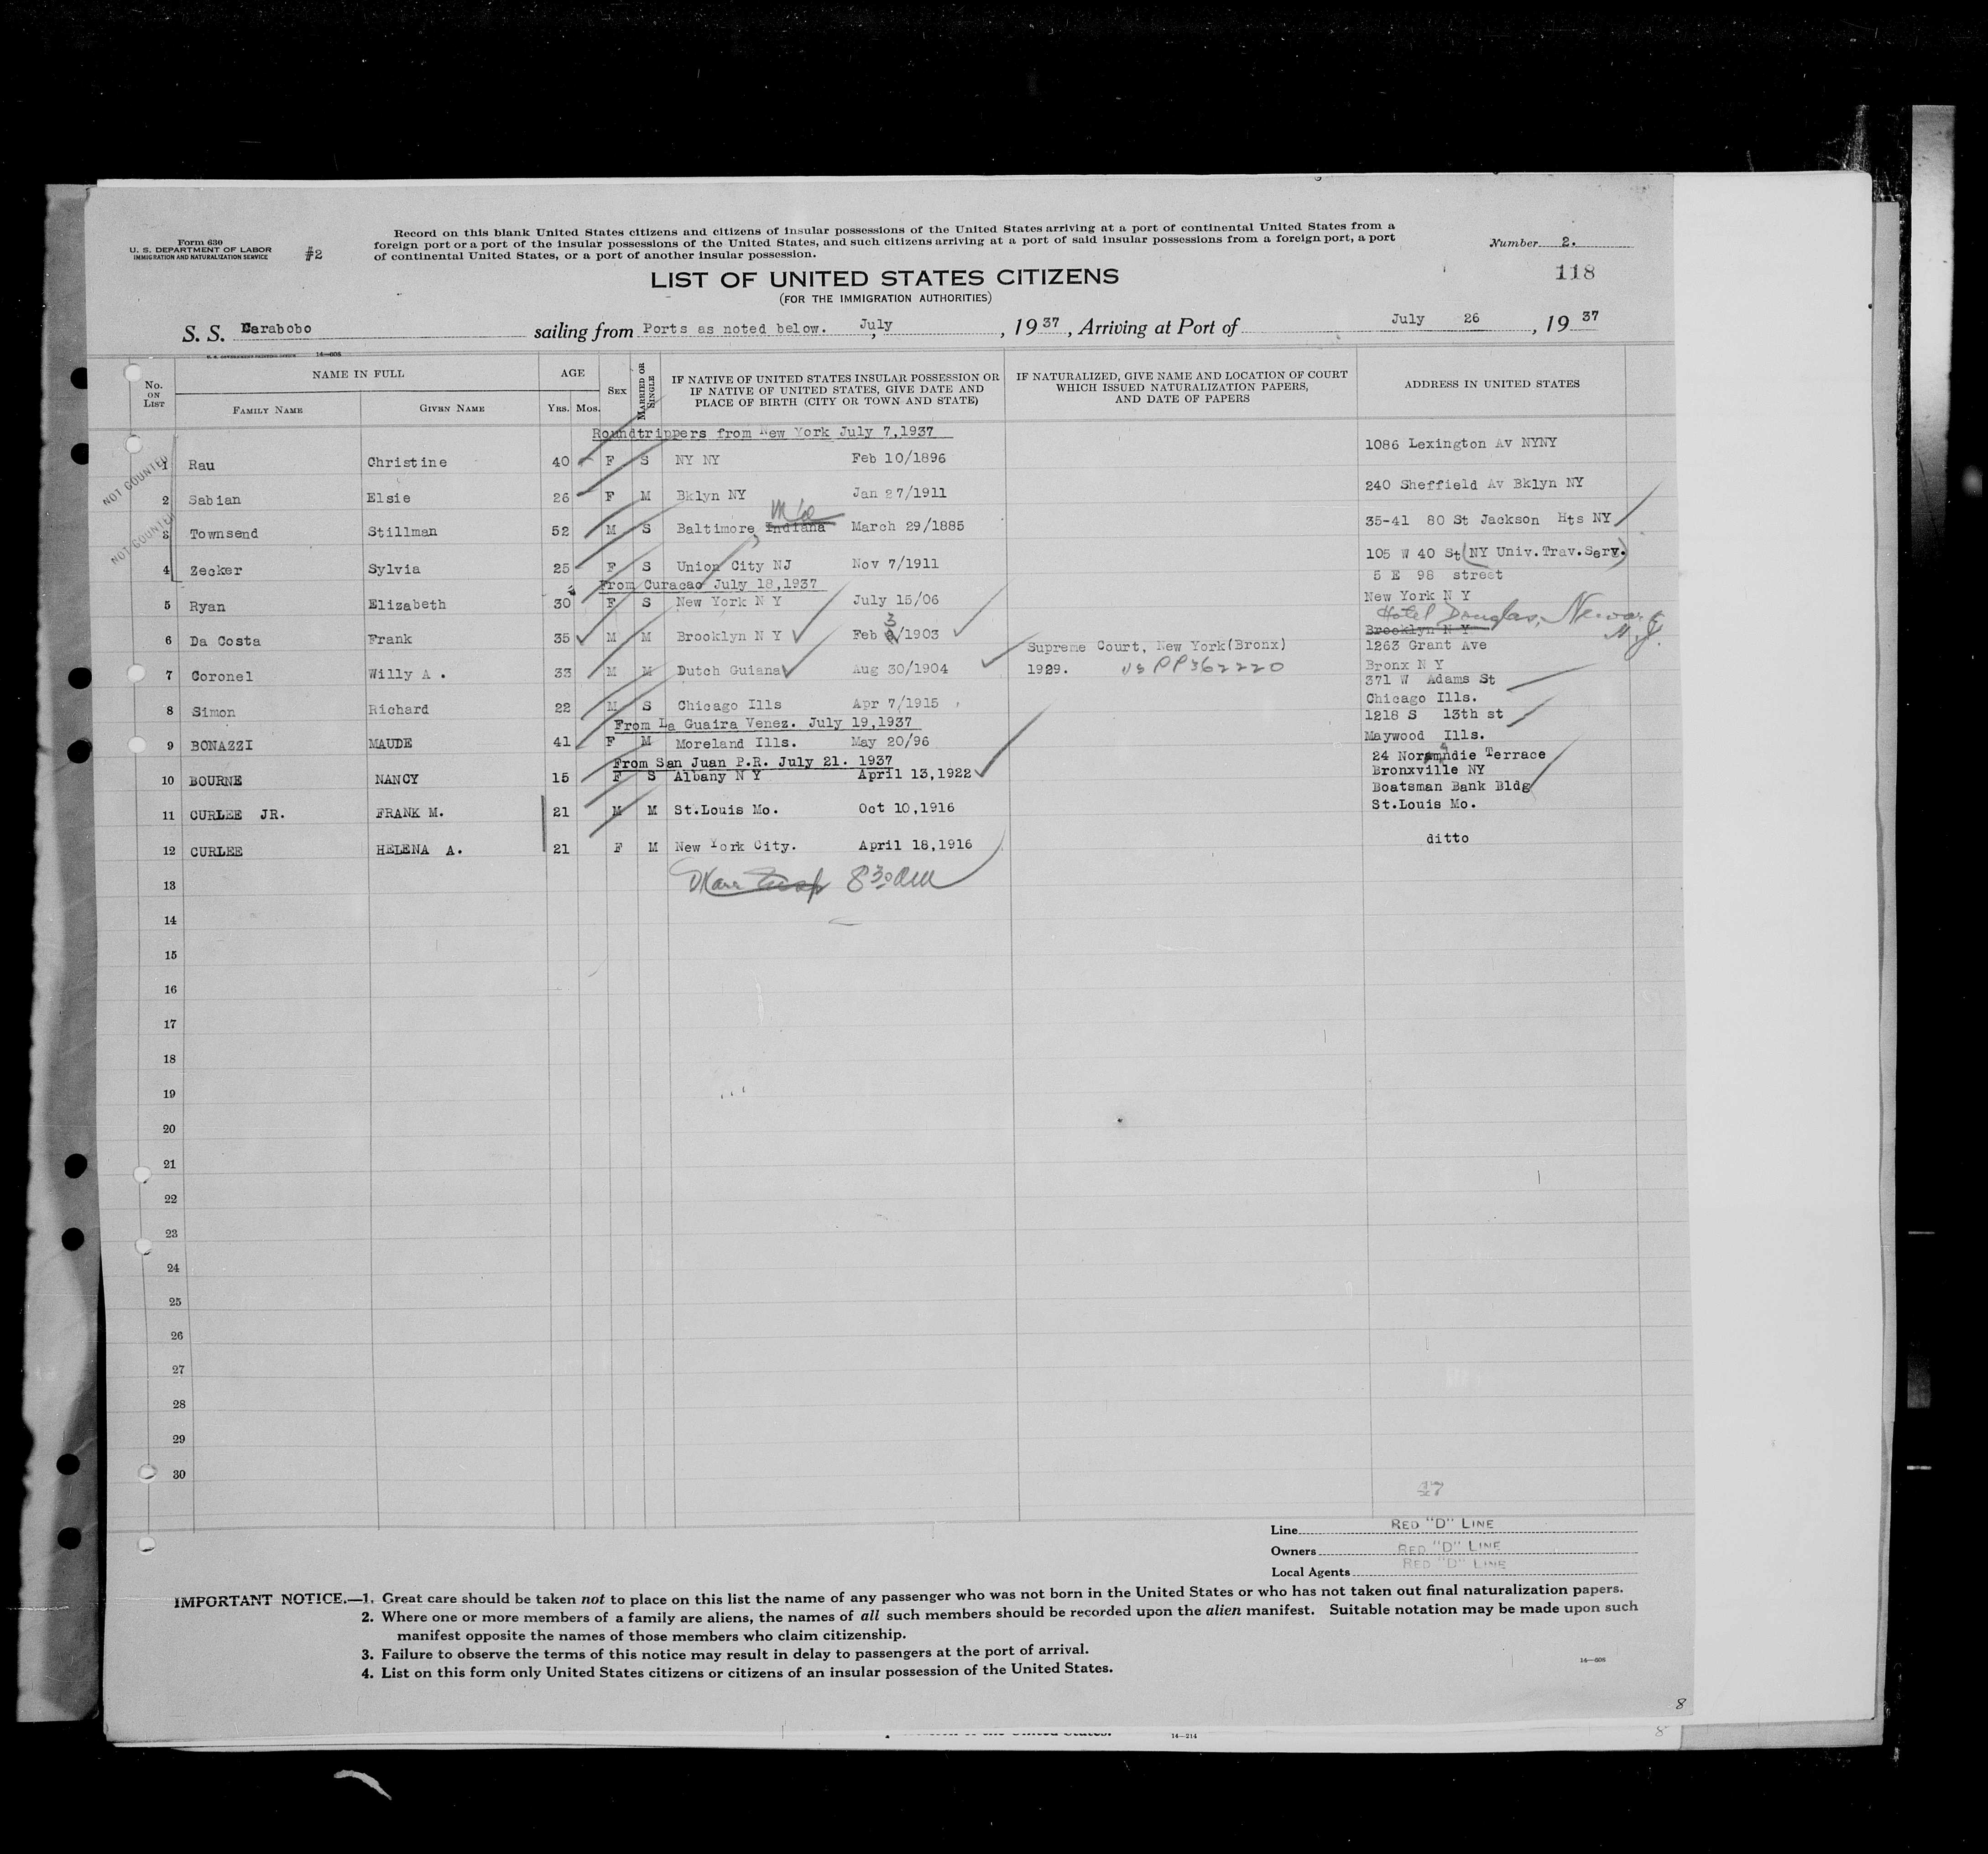 Form 630
U. S. DEPARTMENT OF LABOR
IMMIGRATION AND NATURALIZATION SERVICE
#2
Record on this blank United States citizens and citizens of insular possessions of the United States arriving at a port of continental United States from a
foreign port or a port of the insular possessions of the United States, and such citizens arriving at a port of said insular possessions from a foreign port, a port
of continental United States, or a port of another insular possession.
Number 2.
118
LIST OF UNITED STATES CITIZENS
(FOR THE IMMIGRATION AUTHORITIES)
S. S. Carabobo sailing from Ports as noted below. July, 1937, Arriving at Port of July 26, 1937
U. S. GOVERNMENT PRINTING OFFICE 14—608
No. ON LIST
NAME IN FULL
FAMILY NAME GIVEN NAME
AGE
YRS. MOS.
SEX
MARRIED OR SINGLE
IF NATIVE OF UNITED STATES INSULAR POSSESSION OR
IF NATIVE OF UNITED STATES, GIVE DATE AND
PLACE OF BIRTH (CITY OR TOWN AND STATE)
IF NATURALIZED, GIVE NAME AND LOCATION OF COURT
WHICH ISSUED NATURALIZATION PAPERS,
AND DATE OF PAPERS
ADDRESS IN UNITED STATES
Roundtrippers from New York July 7,1937
NOT COUNTED
1 Rau Christine 40 F S NY NY Feb 10/1896 1086 Lexington Av NYNY
2 Sabian Elsie 26 F M Bklyn NY Jan 27/1911 240 Sheffield Av Bklyn NY
NOT COUNTED
3 Townsend Stillman 52 M S Baltimore Indiana March 29/1885 35-41 80 St Jackson Hts NY
4 Zecker Sylvia 25 F S Union City NJ Nov 7/1911 105 W 40 St(NY Univ.Trav.Serv.)
From Curacao July 18,1937
5 E 98 street
5 Ryan Elizabeth 30 F S New York N Y July 15/06 New York N Y
Hotel Douglas, Newark N.J.
6 Da Costa Frank 35 M M Brooklyn N Y Feb 3/1903 Brooklyn N Y
Supreme Court, New York(Bronx) 1263 Grant Ave
7 Coronel Willy A . 33 M M Dutch Guiana Aug 30/1904 1929. US PP362220 Bronx N Y
371 W Adams St
8 Simon Richard 22 M S Chicago Ills Apr 7/1915 Chicago Ills.
From La Guaira Venez. July 19,1937
1218 S 13th st
9 BONAZZI MAUDE 41 F M Moreland Ills. May 20/96 Maywood Ills.
From San Juan P.R. July 21. 1937
24 Normandie Terrace
10 BOURNE NANCY 15 F S Albany N Y April 13,1922 Bronxville NY
Boatsman Bank Bldg
11 CURLEE JR. FRANK M. 21 M M St.Louis Mo. Oct 10,1916 St.Louis Mo.
12 CURLEE HELENA A. 21 F M New York City. April 18,1916 ditto
13 8 30 am
14
15
16
17
18
19
20
21
22
23
24
25
26
27
28
29
30
47
Line RED "D" LINE
Owners RED "D" LINE
Local Agents RED "D" LINE
IMPORTANT NOTICE.—1. Great care should be taken not to place on this list the name of any passenger who was not born in the United States or who has not taken out final naturalization papers.
2. Where one or more members of a family are aliens, the names of all such members should be recorded upon the alien manifest. Suitable notation may be made upon such
manifest opposite the names of those members who claim citizenship.
3. Failure to observe the terms of this notice may result in delay to passengers at the port of arrival.
4. List on this form only United States citizens or citizens of an insular possession of the United States.
14—608
8
14—214
8